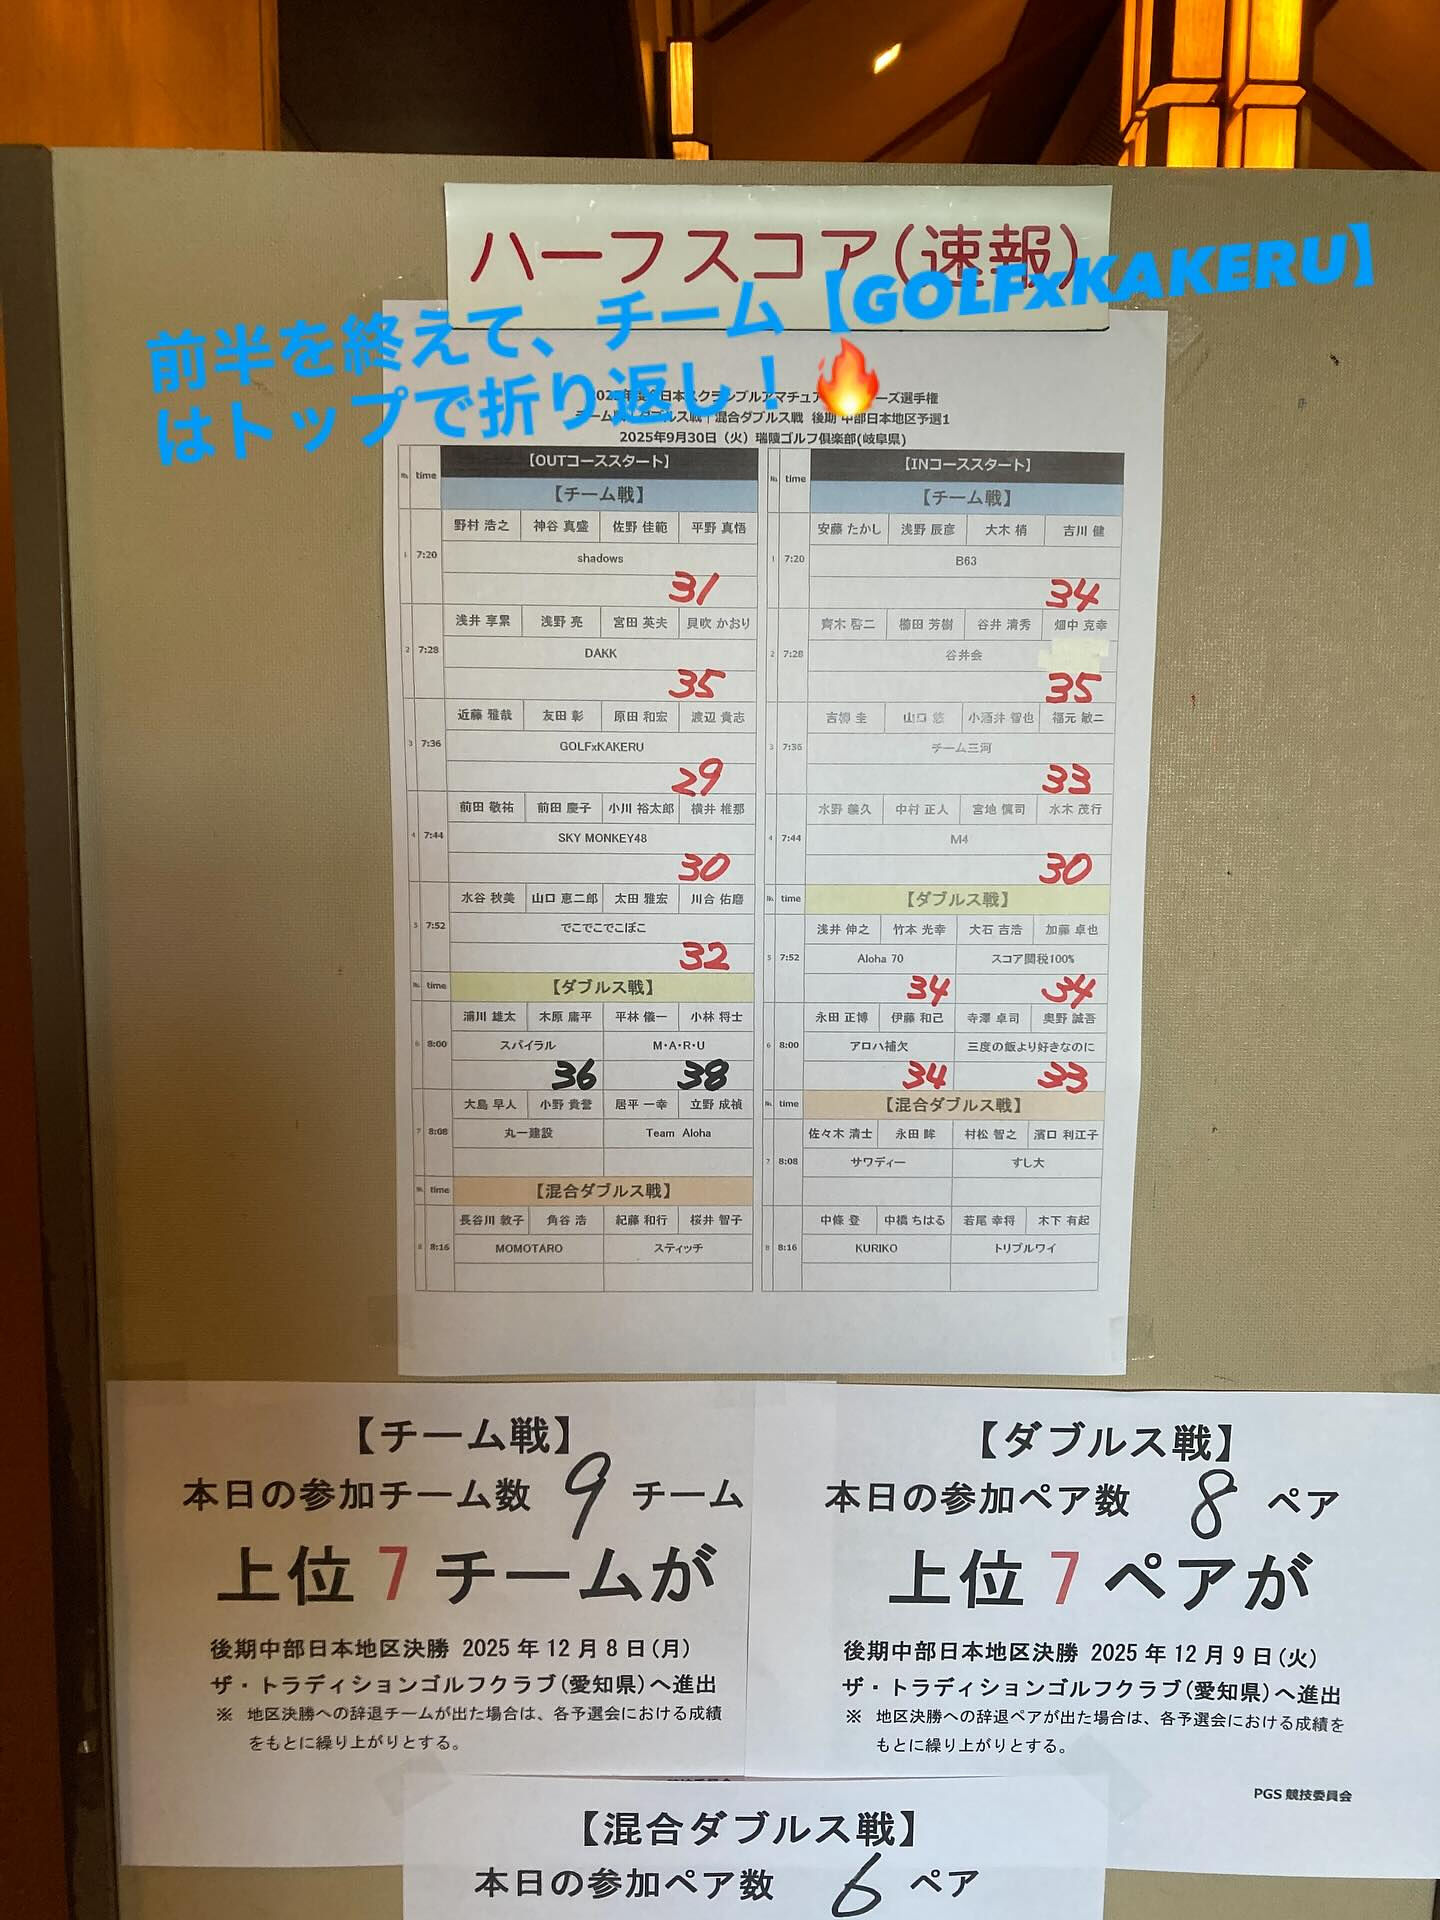 ハーフスコア(速報)
前半を終えて、チーム【GOLFxKAKERU】
はトップで折り返し！🔥
混合ダブルス戦 後期 中部日本地区予選1
2025年9月30日（火）瑞陵ゴルフ倶楽部(岐阜県)
No. time 【OUTコーススタート】
【チーム戦】
野村 浩之 神谷 真盛 佐野 佳範 平野 真悟
1 7:20 shadows
31
浅井 享累 浅野 亮 宮田 英夫 貝吹 かおり
2 7:28 DAKK
35
近藤 雅哉 友田 彰 原田 和宏 渡辺 貴志
3 7:36 GOLFxKAKERU
29
前田 敬祐 前田 慶子 小川 裕太郎 横井 椎那
4 7:44 SKY MONKEY48
30
水谷 秋美 山口 恵二郎 太田 雅宏 川合 佑磨
5 7:52 でこでこでこぼこ
32
No. time 【ダブルス戦】
浦川 雄太 木原 庸平 平林 儀一 小林 将士
6 8:00 スパイラル M・A・R・U
36 38
大島 早人 小野 貴誉 居平 一幸 立野 成禎
7 8:08 丸一建設 Team Aloha
No. time 【混合ダブルス戦】
長谷川 敦子 角谷 浩 紀藤 和行 桜井 智子
8 8:16 MOMOTARO スティッチ
No. time 【INコーススタート】
【チーム戦】
安藤 たかし 浅野 辰彦 大木 梢 吉川 健
1 7:20 B63
34
齊木 啓二 櫛田 芳樹 谷井 清秀 畑中 克幸
2 7:28 谷井会
35
吉栁 圭 山口 悠 小酒井 智也 福元 敏二
3 7:36 チーム三河
33
水野 義久 中村 正人 宮地 慎司 水木 茂行
4 7:44 M4
30
No. time 【ダブルス戦】
浅井 伸之 竹本 光幸 大石 吉浩 加藤 卓也
5 7:52 Aloha 70 スコア関税100%
34 34
永田 正博 伊藤 和己 寺澤 卓司 奥野 誠吾
6 8:00 アロハ補欠 三度の飯より好きなのに
34 33
No. time 【混合ダブルス戦】
佐々木 清士 永田 眸 村松 智之 濱口 利江子
7 8:08 サワディー すし大
中條 登 中橋 ちはる 若尾 幸将 木下 有起
8 8:16 KURIKO トリプルワイ
【チーム戦】
本日の参加チーム数 9 チーム
上位 7 チームが
後期中部日本地区決勝 2025 年 12 月 8 日(月)
ザ・トラディションゴルフクラブ(愛知県)へ進出
※ 地区決勝への辞退チームが出た場合は、各予選会における成績
をもとに繰り上がりとする。
【ダブルス戦】
本日の参加ペア数 8 ペア
上位 7 ペアが
後期中部日本地区決勝 2025 年 12 月 9 日(火)
ザ・トラディションゴルフクラブ(愛知県)へ進出
※ 地区決勝への辞退ペアが出た場合は、各予選会における成績を
もとに繰り上がりとする。
PGS 競技委員会
【混合ダブルス戦】
本日の参加ペア数 6 ペア